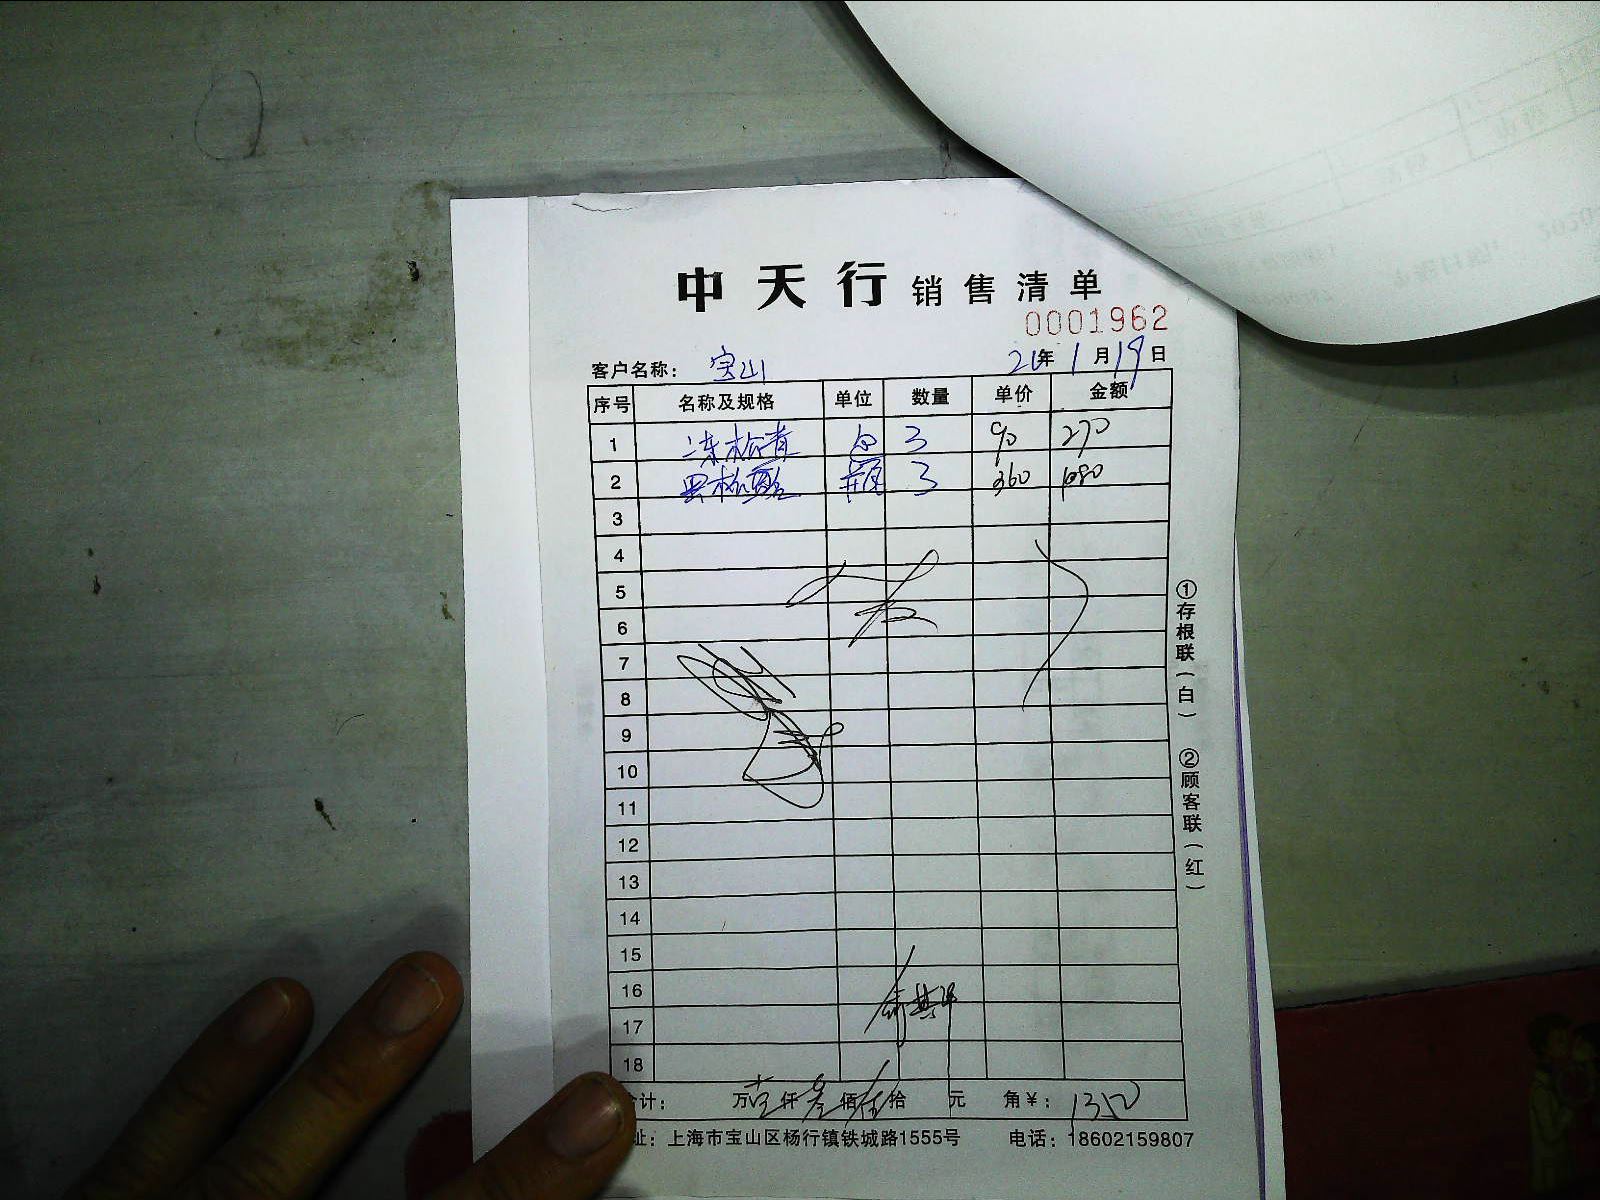 中天行销售清单
0001962
客户名称： 宝山 20年 1月19日
序号 名称及规格 单位 数量 单价 金额
1 冻松茸 包 3 90 270
2 黑松露 瓶 3 360 1080
3
4
5
6
7
8
9
10
11
12
13
14
15
16
17
18
合计： 万壹仟叁佰伍拾 元 角￥： 1350
址：上海市宝山区杨行镇铁城路1555号 电话：18602159807
①存根联（白） ②顾客联（红）